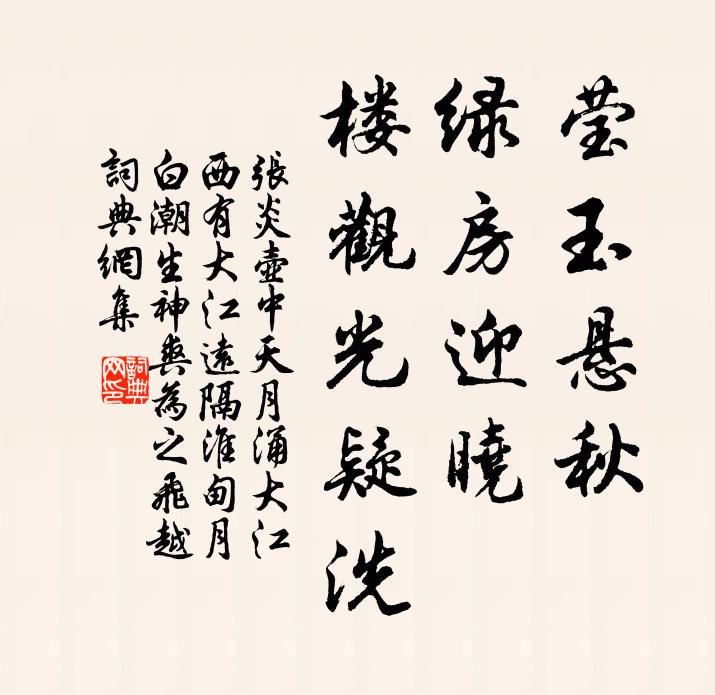 莹玉悬秋
绿房迎曉
楼觀光疑洗
張炎壺中天月涌大江
西有大江遠隔淮甸月
白潮生神爽為之飛越
詞典網集
詞典
网印